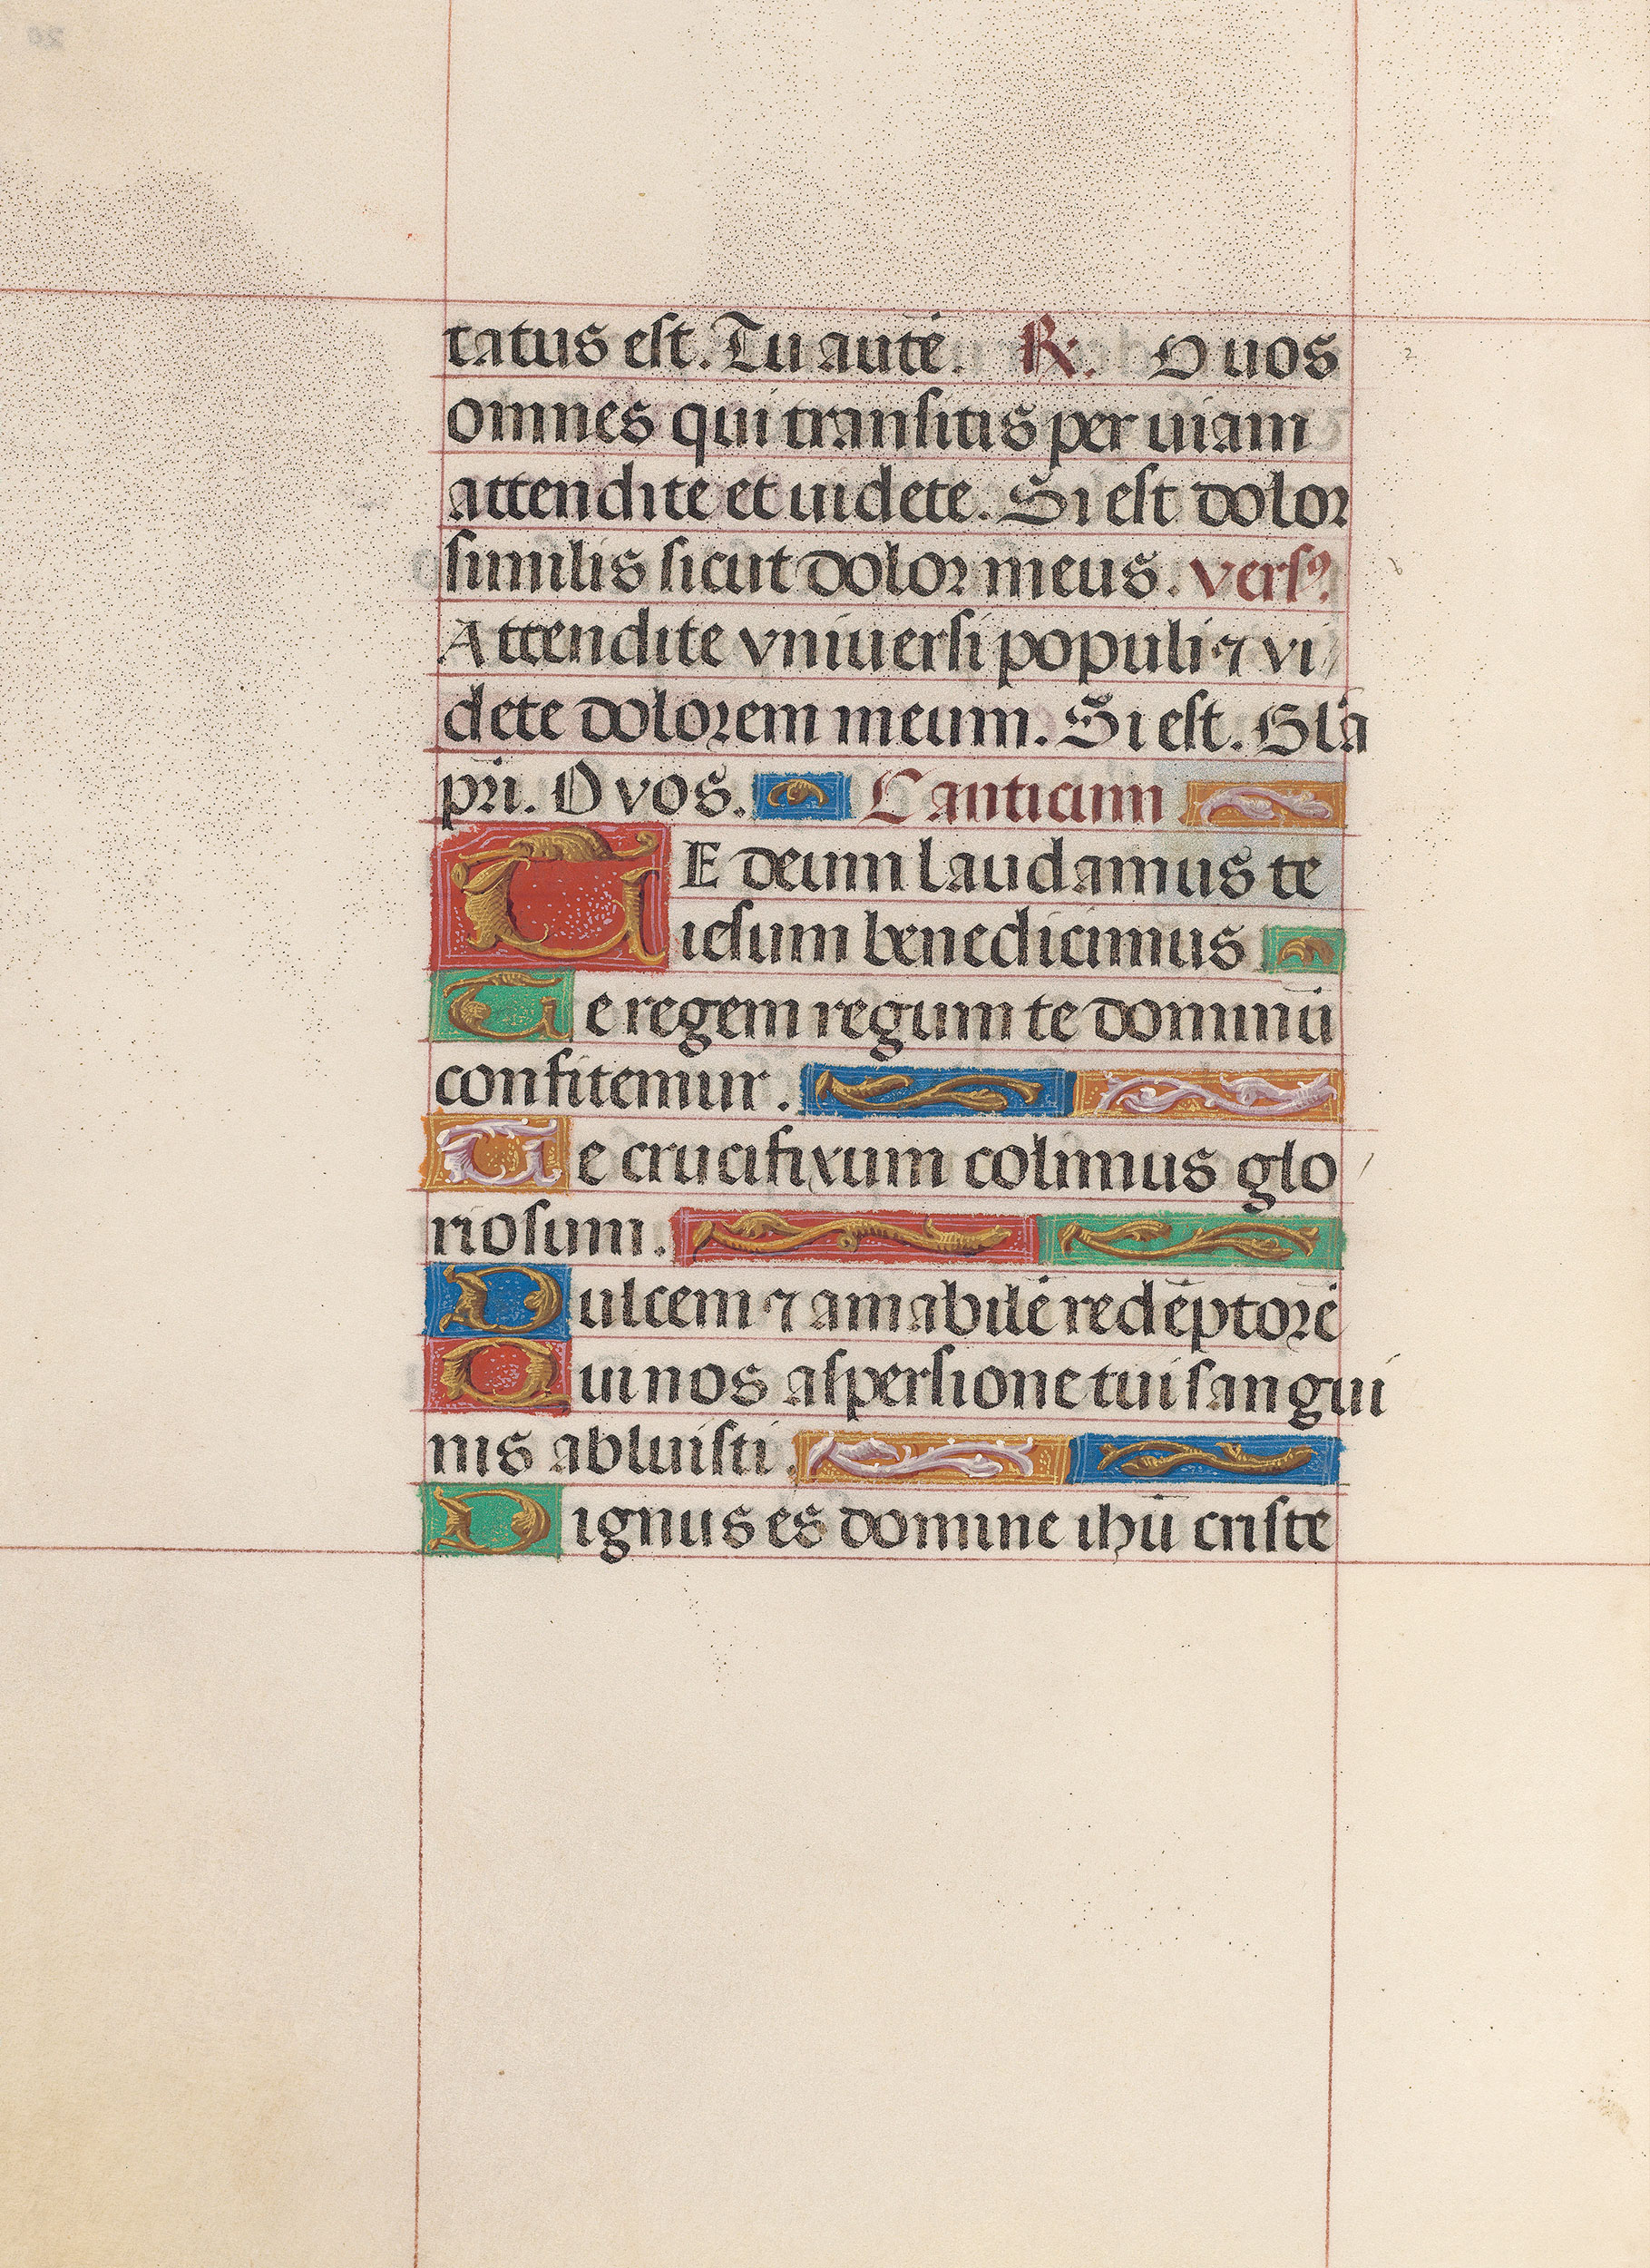 tatus est. Tu autē. R. O uos
omnes qui transitis per uiam
attendite et uidete. Si est dolor
similis sicut dolor meus. versꝰ.
Attendite vniuersi populi ⁊ vi//
dete dolorem meum. Si est. Glā
pri. O vos. Canticum
TE deum laudamus te
iesum benedicimus
Te regem regum te dominū
confitemur.
Te crucifixum colimus glo
riosum.
Dulcem ⁊ amabilē redēptorē
Qui nos aspersione tui sangui
nis abluisti.
Dignus es domine ihū criste